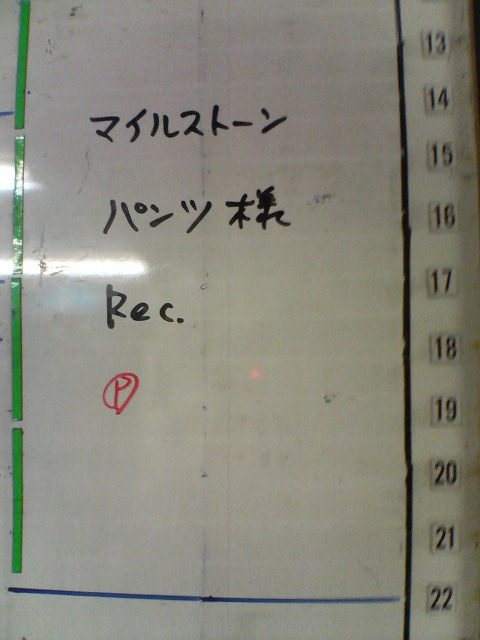 13
14
マイルストーン
15
パンツ様
16
17
Rec.
18
Ⓟ
19
20
21
22